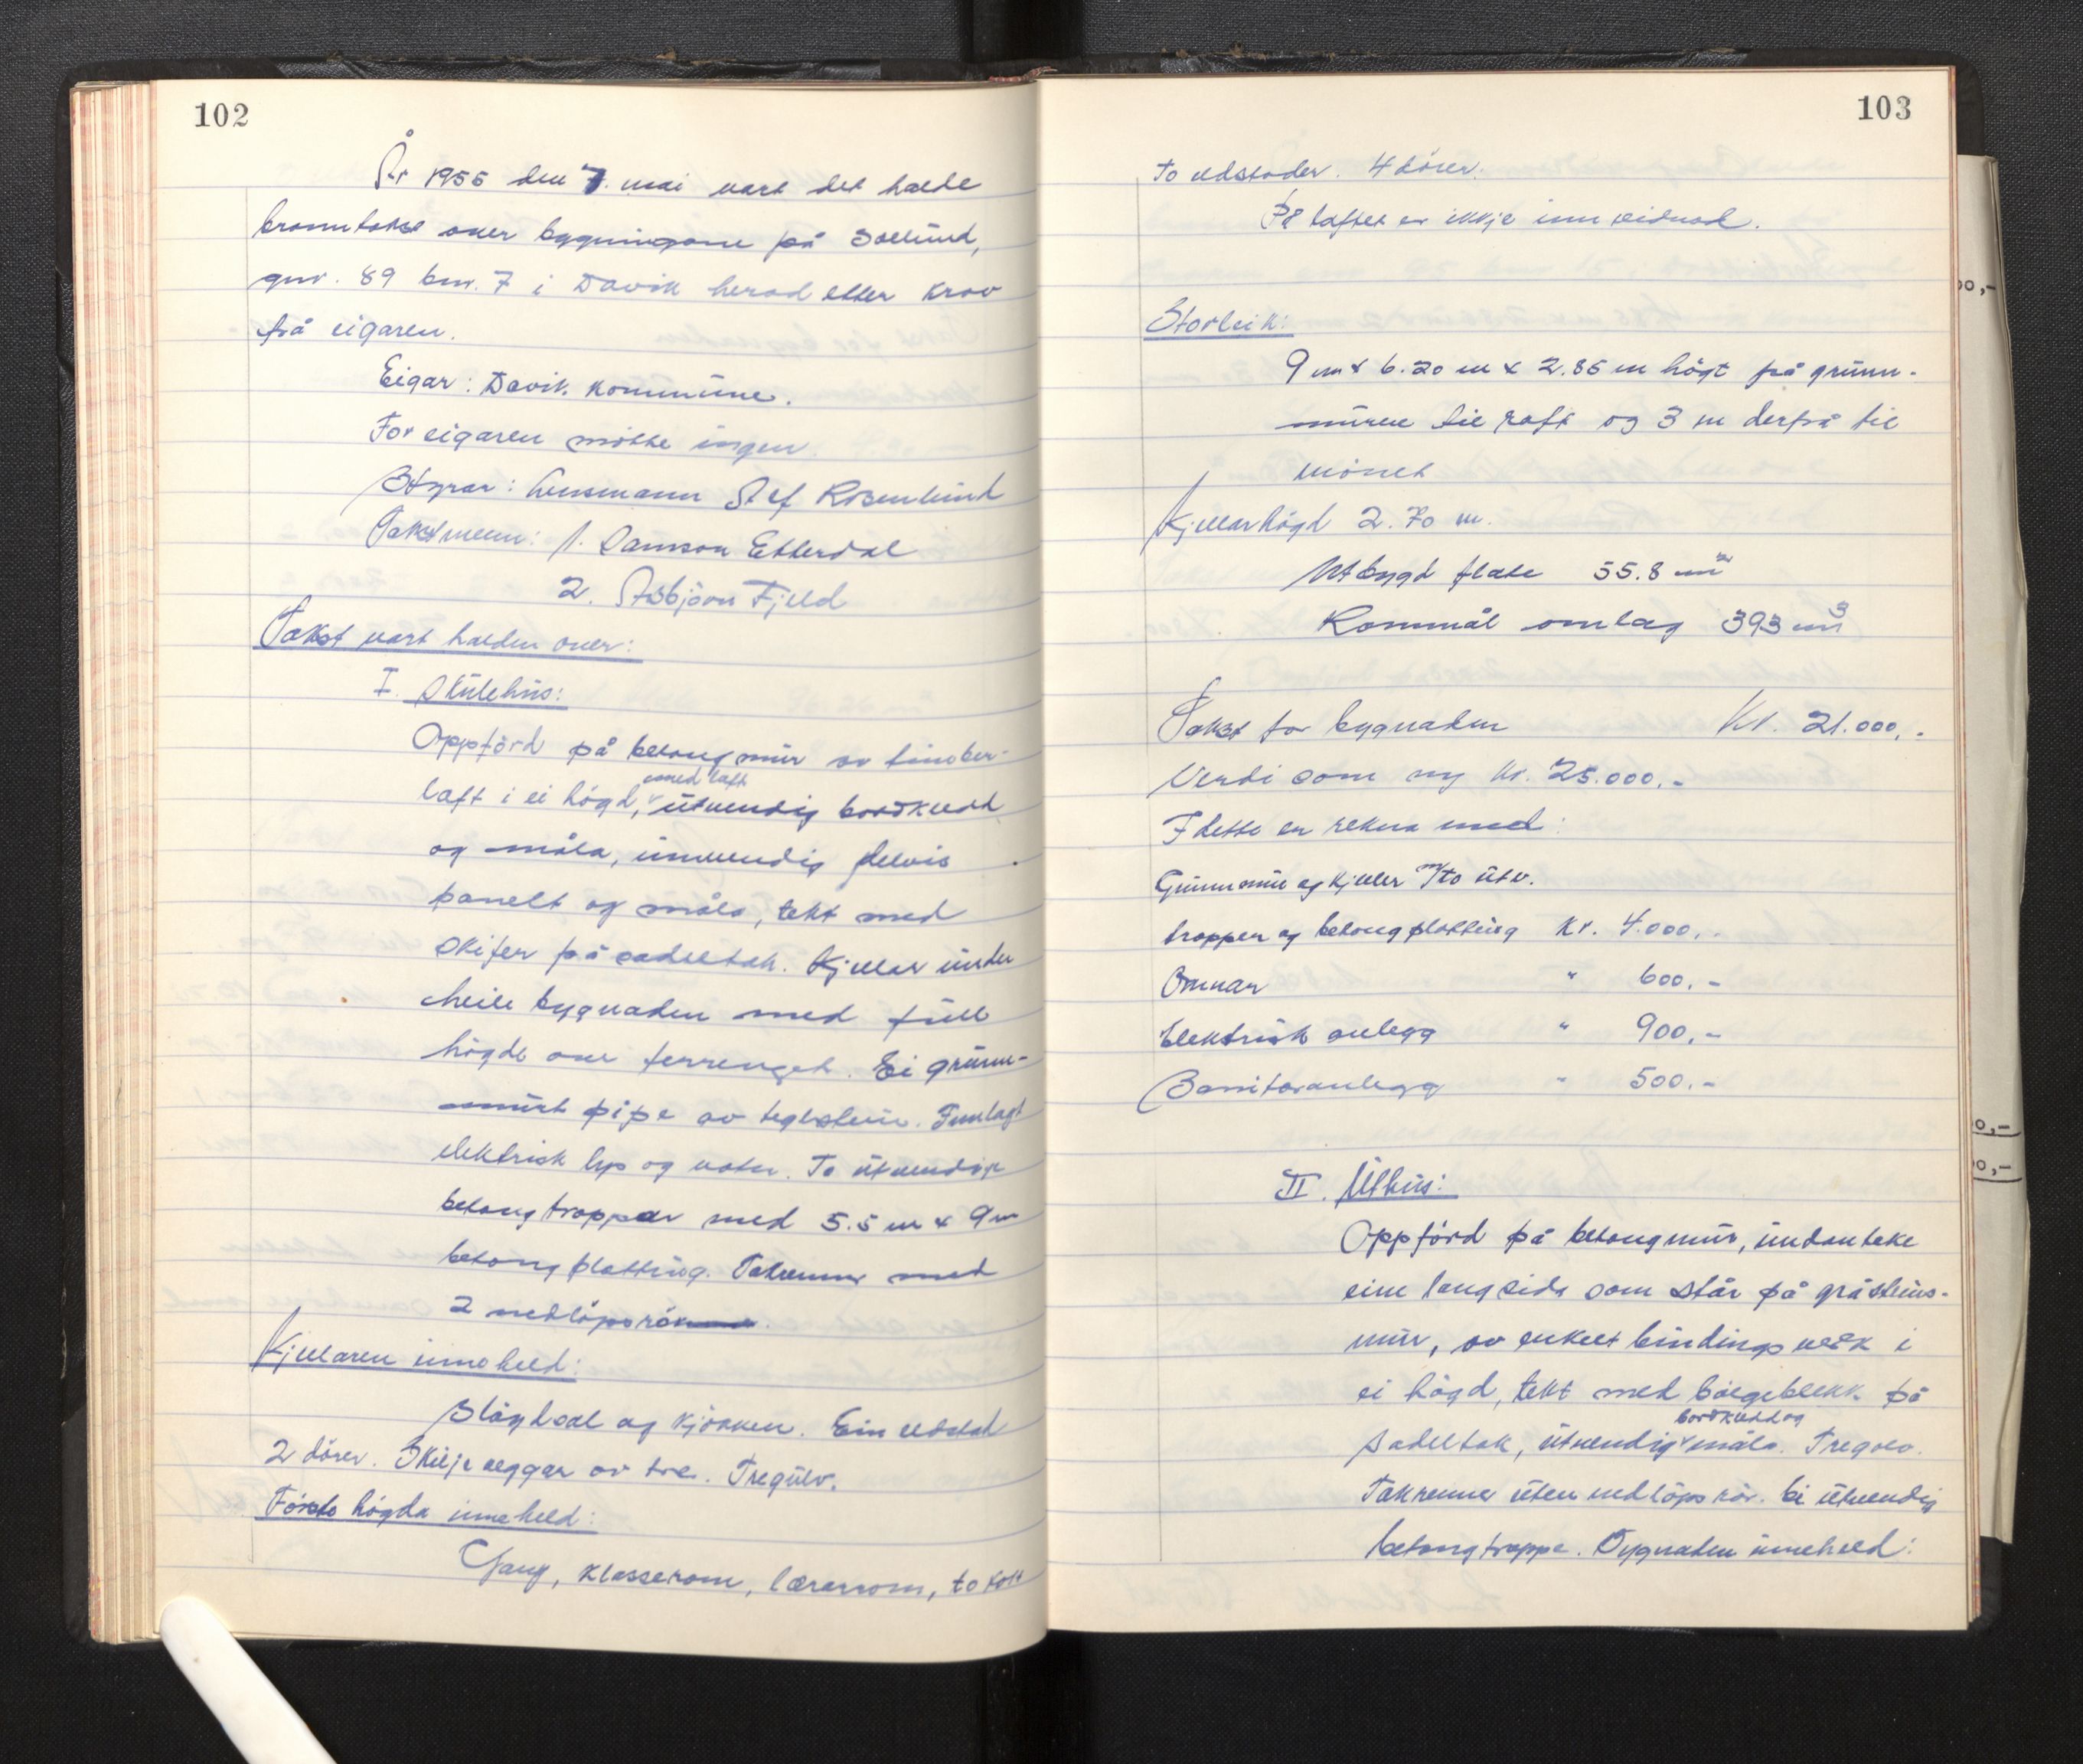 102
År 1955 den 7. mai vart det halde
branntakst over bygningane på Solund,
gnr. 89 bnr. 7 i Davik herad etter krav
frå eigaren.
Eigar: Davik kommune.
For eigaren møtte ingen.
Styrar: Lensmann Alf Rosenlund
Takstmenn: 1. Samson Etterdal
2. Asbjörn Fjeld
Takst vart halden over:
I. Skülehüs:
Oppförd på betongmür av timber-
laft i ei högd, med laft ütvendig bordkledd
og måla, innvendig delvis
panelt og måla, tekt med
skifer på sadeltak. Kjellar ünder
heile bygnaden med füll
högde over terrenget. Ei grünn-
mürt pipe av teglstein. Innlagt
elektrisk lys og vatn. To ütvendige
betongtrappar med 5.5 m x 9 m
betongplatting. Takrenner med
2 nedlöpsrör.
Kjellaren inneheld:
Slöydsal og kjökken. Ein eldstad
2 dörer. Skiljeveggar av tre. Tregülv.
Första högda inneheld:
Gang, klasserom, lærarrom, to kott
103
to eldstader. 4 dörer.
På loftet er ikkje innreidnad.
Storleik:
9 m x 6.20 m x 2.85 m högt frå grünn-
müren til raft og 3 m derfrå til
mönet
Kjellarhögd 2.70 m.
Utbygd flate 55.8 m²
Rommål omlag 393 m³
Takst for bygnaden Kr. 21.000,-
Verdi som ny kr. 25.000,-
I dette er rekna med:
Grünnmür og kjeller m/to ütv.
trapper og betongplatting Kr. 4.000,-
Omnar " 600,-
Elektrisk anlegg " 900,-
Sanitæranlegg " 500,-
II. Uthüs:
Oppförd på betongmür, ündanteke
eine langsida som står på gråsteins-
mür, av enkelt bindingsverk i
ei högd, tekt med bölgeblekk på
sadeltak, ütvendig bordkledd og måla. Tregolv.
Takrenner üten nedlöpsrör. Ei ütvendig
betongtrappe. Bygnaden inneheld:
00,-
0,-
00,-